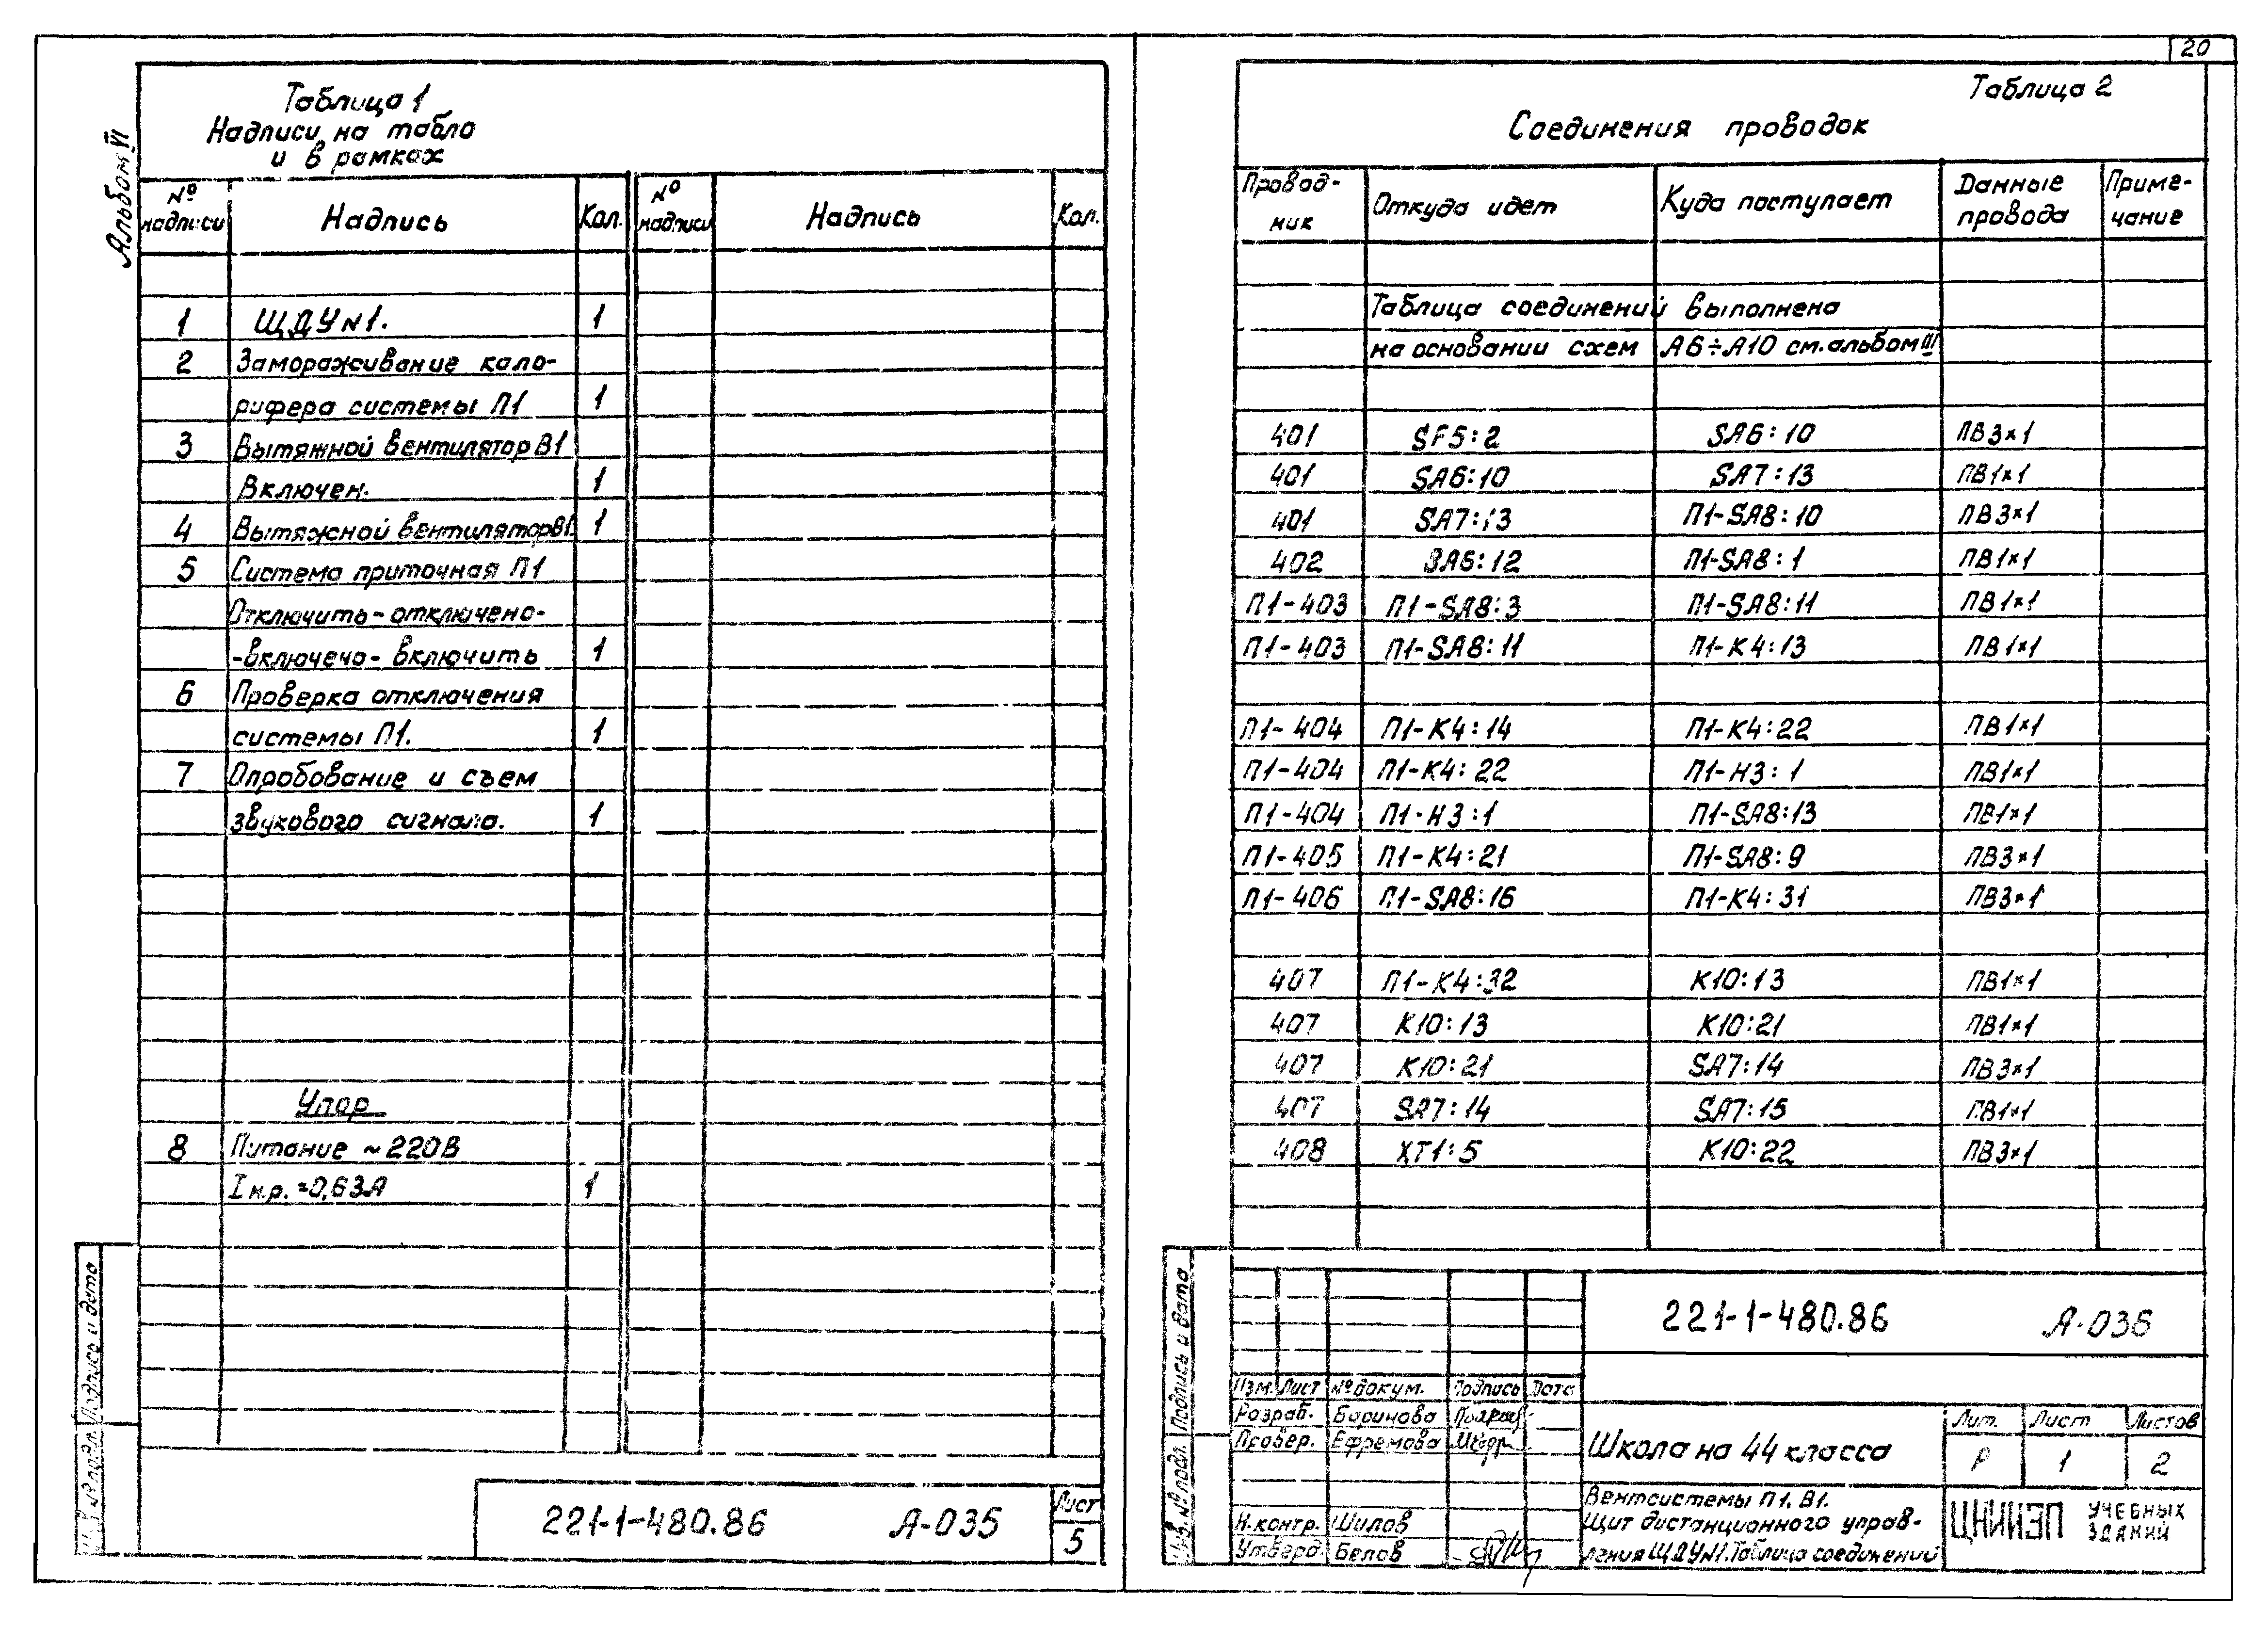 Альбом VI
Таблица 1
Надписи на табло
и в рамках
№ надписи Надпись Кол. № надписи Надпись Кол.
1 ЩДУ №1. 1
2 Замораживание кало-
рифера системы П1 1
3 Вытяжной вентилятор В1
Включен. 1
4 Вытяжной вентилятор В1. 1
5 Система приточная П1
Отключить-отключено-
-включено-включить 1
6 Проверка отключения
системы П1. 1
7 Опробование и съем
звукового сигнала. 1
Упор
8 Питание ~220В
I н.р.=0,63А 1
Подпись и дата
221-1-480.86 А-035
Лист
5
20
Таблица 2
Соединения проводок
Провод-ник Откуда идет Куда поступает Данные провода Приме-чание
Таблица соединений выполнена
на основании схем А6÷А10 см. альбом III
401 SF5:2 SA6:10 ПВ3×1
401 SA6:10 SA7:13 ПВ1×1
401 SA7:13 П1-SA8:10 ПВ3×1
402 SA6:12 П1-SA8:1 ПВ1×1
П1-403 П1-SA8:3 П1-SA8:11 ПВ1×1
П1-403 П1-SA8:11 П1-К4:13 ПВ1×1
П1-404 П1-К4:14 П1-К4:22 ПВ1×1
П1-404 П1-К4:22 П1-Н3:1 ПВ1×1
П1-404 П1-Н3:1 П1-SA8:13 ПВ1×1
П1-405 П1-К4:21 П1-SA8:9 ПВ3×1
П1-406 П1-SA8:16 П1-К4:31 ПВ3×1
407 П1-К4:32 К10:13 ПВ1×1
407 К10:13 К10:21 ПВ1×1
407 К10:21 SA7:14 ПВ3×1
407 SA7:14 SA7:15 ПВ1×1
408 ХТ1:5 К10:22 ПВ3×1
Инв. № подл. Подпись и дата
221-1-480.86 А-036
Изм. Лист № докум. Подпись Дата
Разраб. Баринова
Провер. Ефремова
Н.контр. Шилов
Утверд. Белов
Школа на 44 класса
Лит. Лист Листов
Р 1 2
Вентсистемы П1, В1.
Щит дистанционного управ-
ления ЩДУ№1. Таблица соединений
ЦНИИЭП УЧЕБНЫХ ЗДАНИЙ